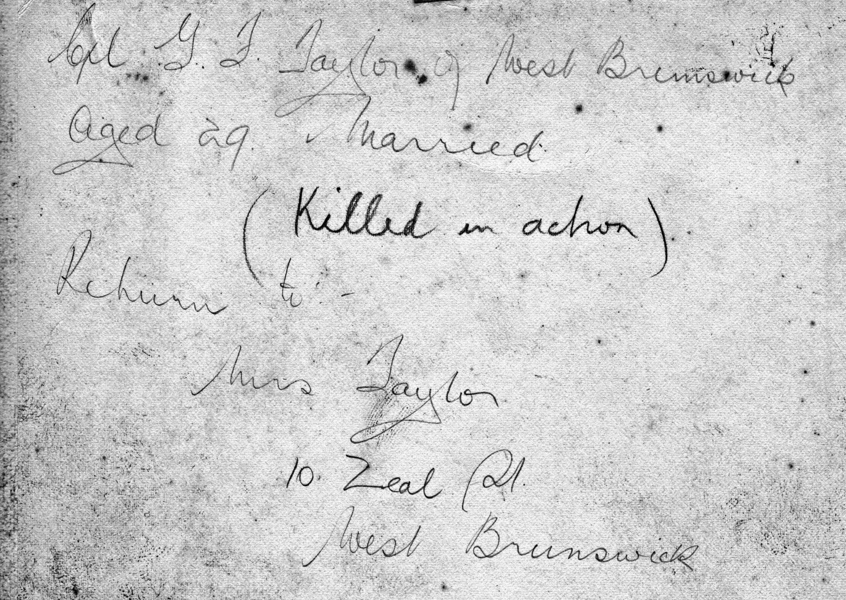 Cpl G. F. Taylor of West Brunswick
Aged 29. Married.
(Killed in action)
Return to -
Mrs Taylor
10. Zeal St.
West Brunswick